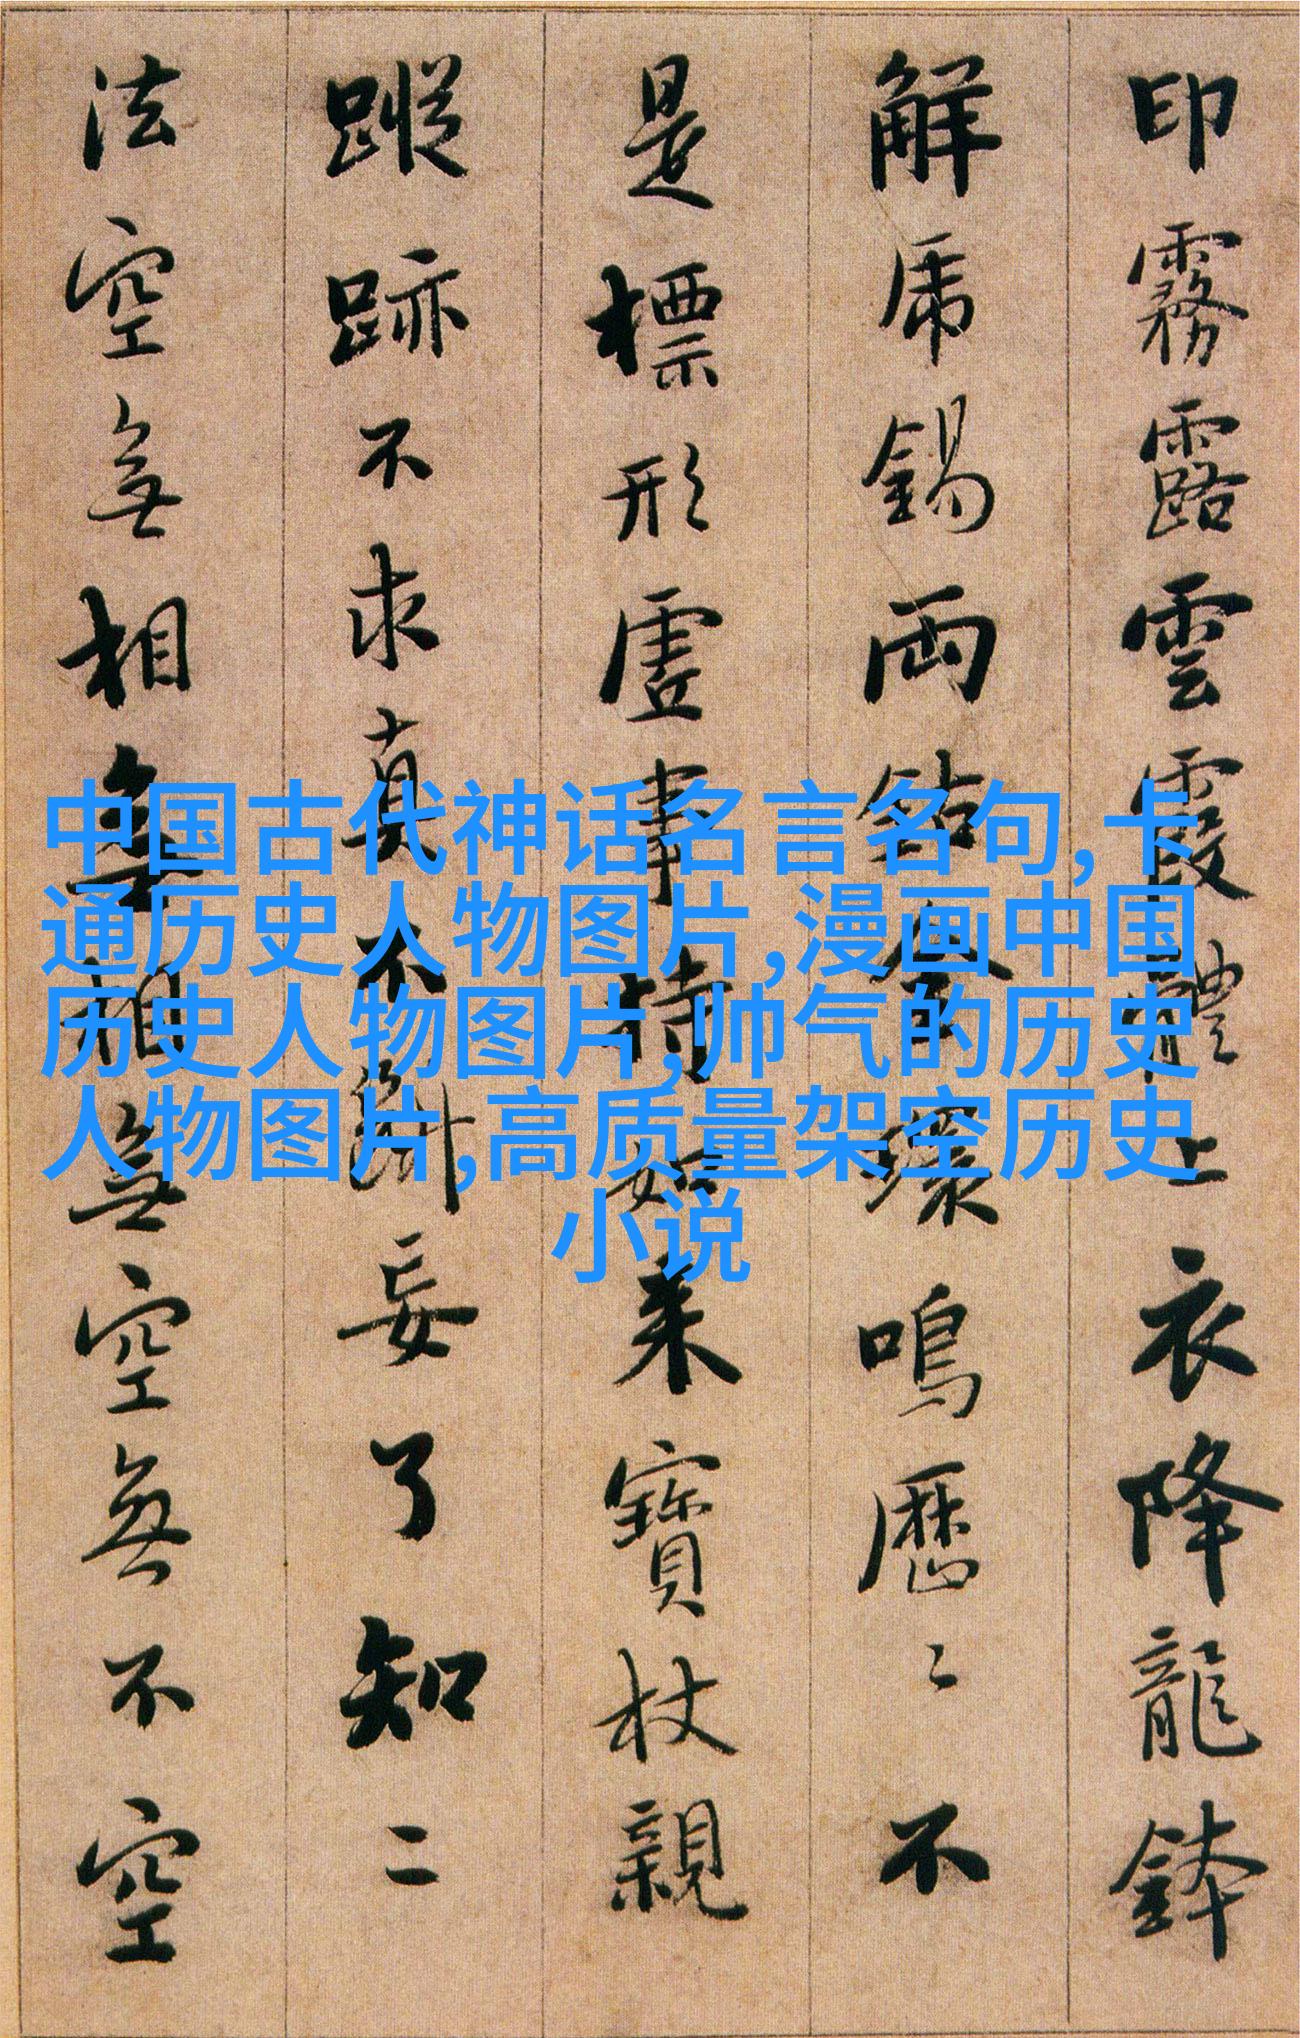 印霧露雲霞體上衣降龍鉢
解虎錫兩鈷金環鳴歷〻不
是標形虛事持如來寶杖親
蹤跡不求真不斷妄了知二
法空無相無相無空無不空
中国古代神话名言名句,卡
通历史人物图片,漫画中国
历史人物图片,帅气的历史
人物图片,高质量架空历史
小说